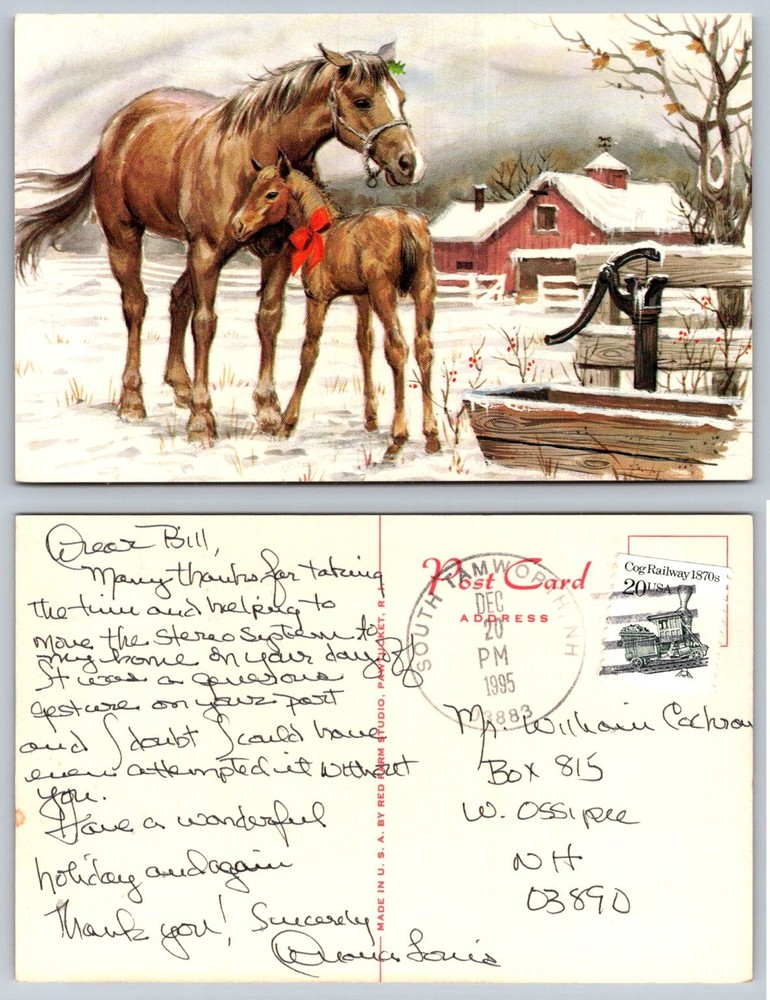 Dear Bill,
Many thanks for taking
the time and helping to
move the stereo system to
my home on your day off
It was a generous
gesture on your part
and I doubt I could have
even attempted it without
you.
Have a wonderful
holiday and again
Thank you! Sincerely
MADE IN U. S. A. BY RED FARM STUDIO, PAWTUCKET, R.
Post Card
ADDRESS
SOUTH TAMWORTH NH
DEC
20
PM
1995
3883
Cog Railway 1870s
20 USA
Mr. William Cochran
Box 815
W. Ossipee
NH
03890